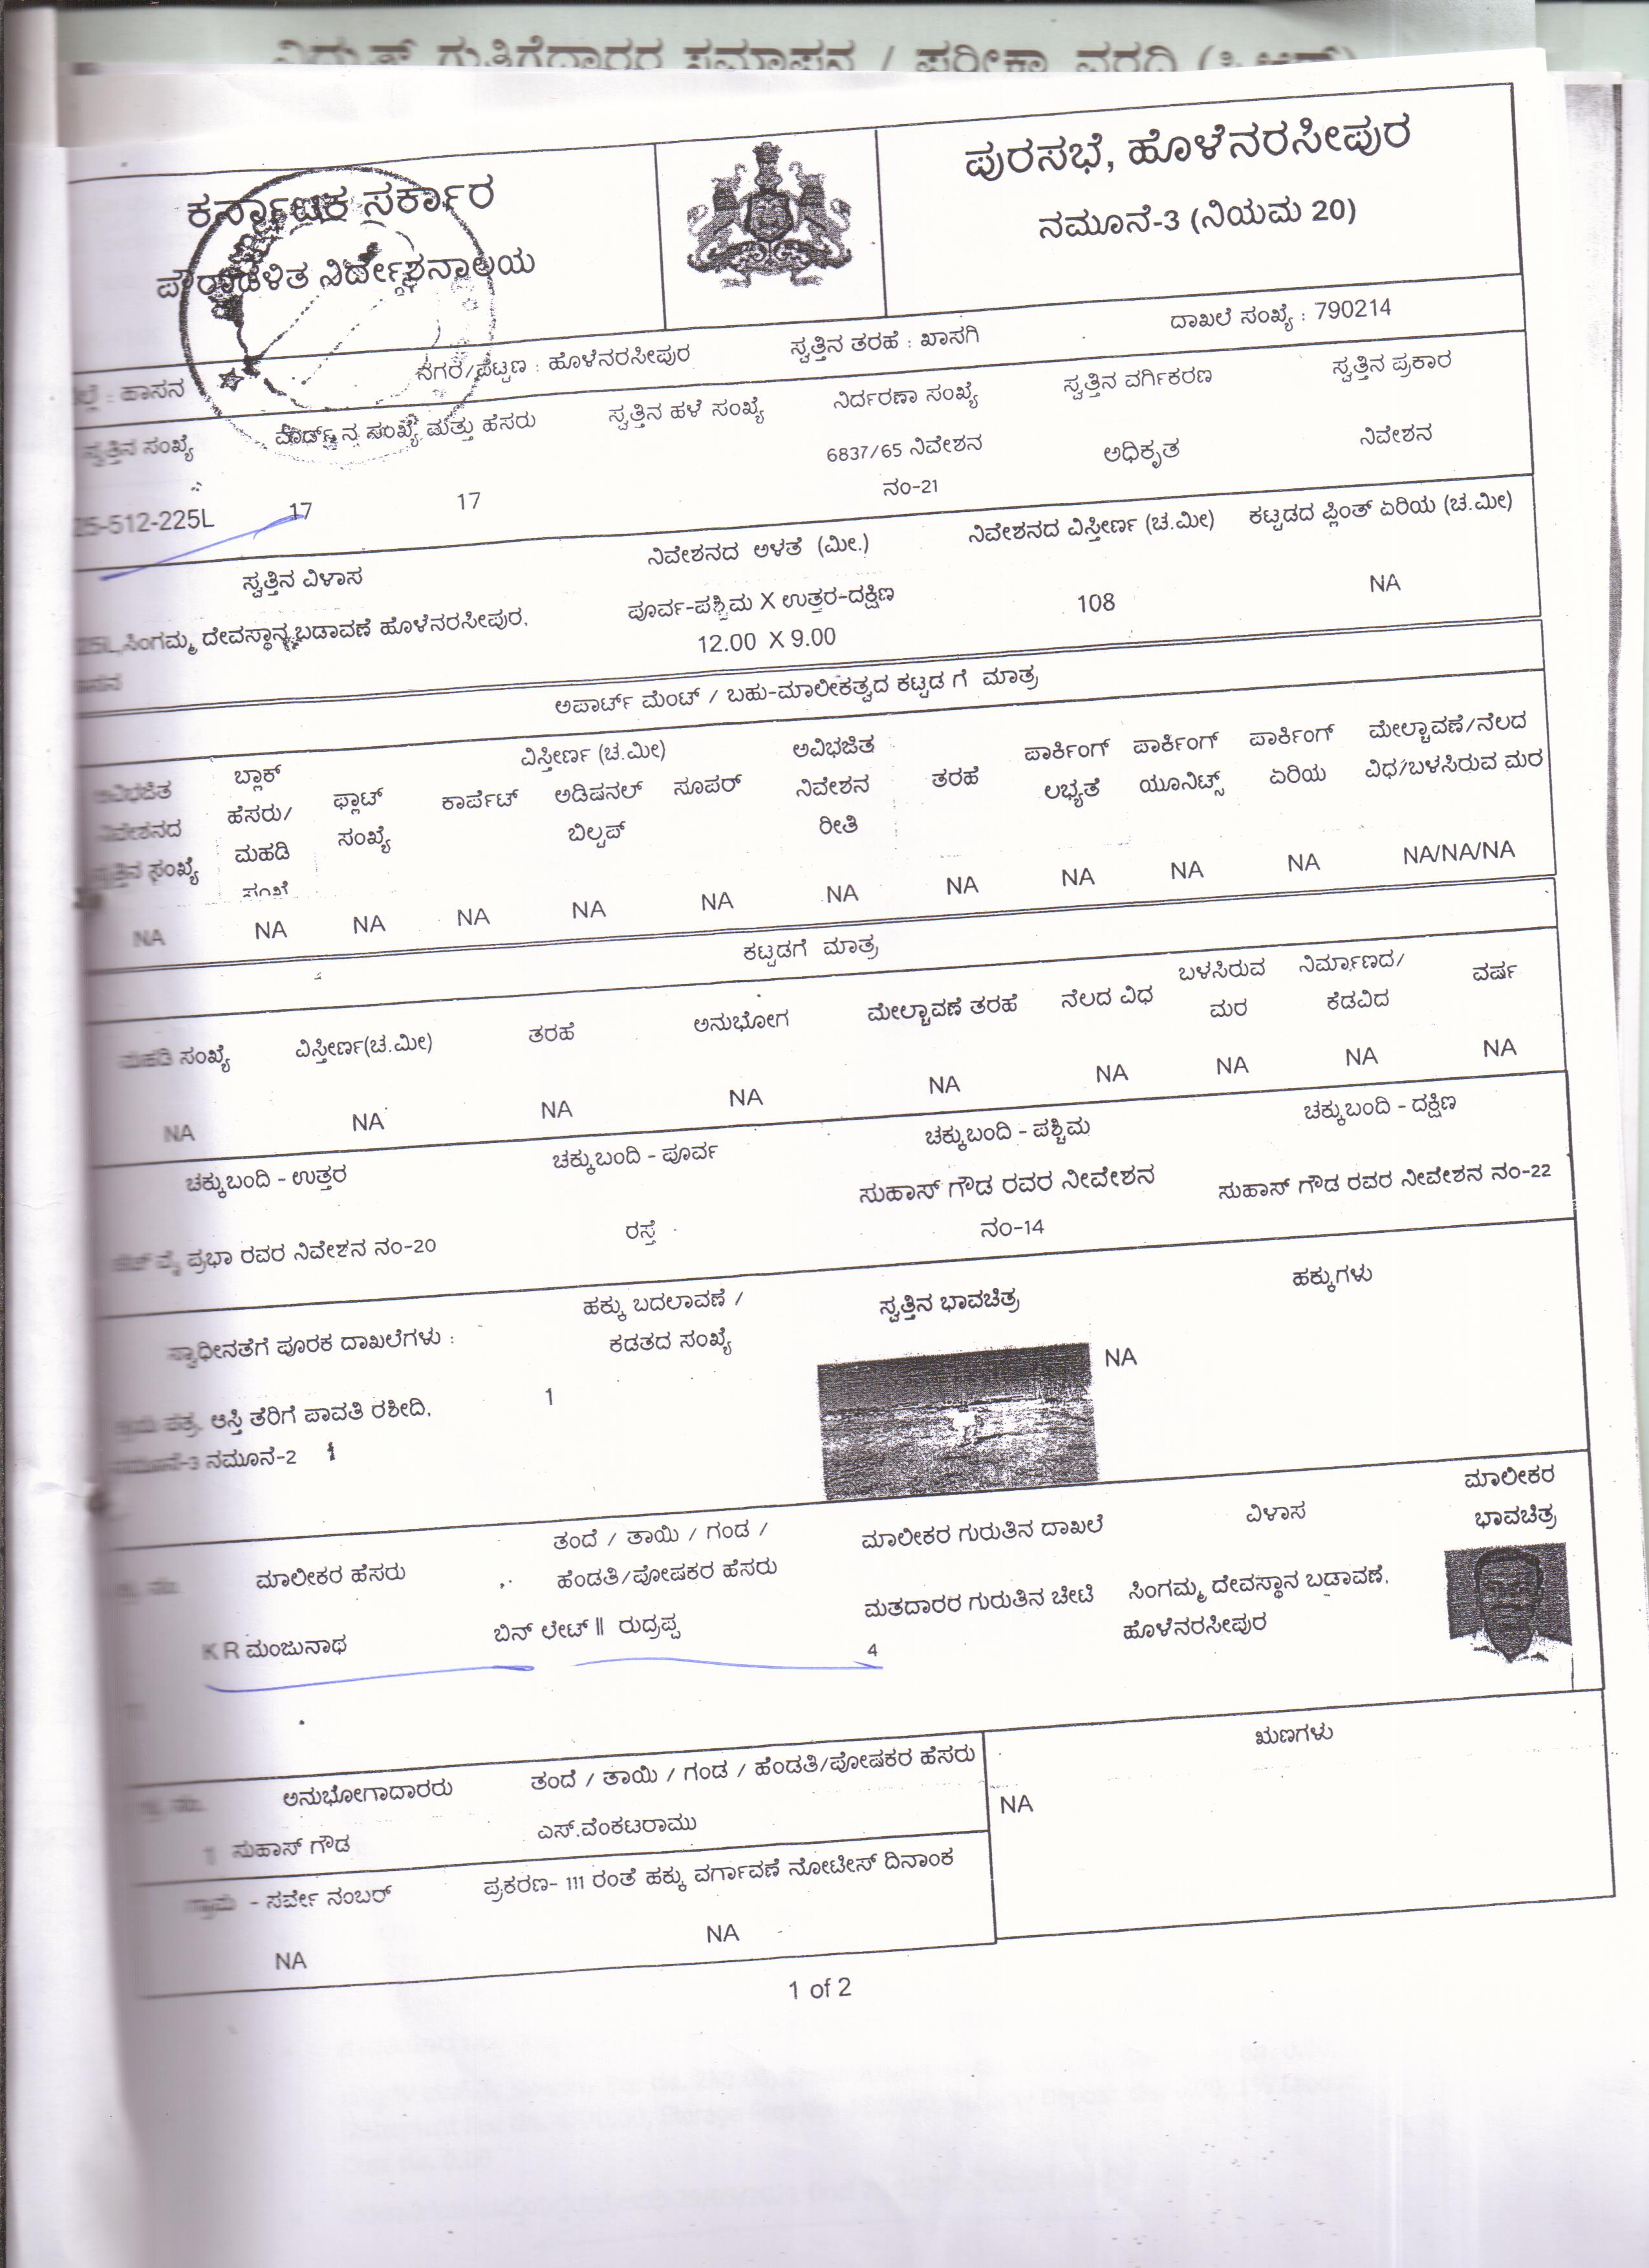 ಕರ್ನಾಟಕ ಸರ್ಕಾರ
ಪೌರಾಡಳಿತ ನಿರ್ದೇಶನಾಲಯ
ಪುರಸಭೆ, ಹೊಳೆನರಸೀಪುರ
ನಮೂನೆ-3 (ನಿಯಮ 20)
: ಹಾಸನ ನಗರ/ಪಟ್ಟಣ : ಹೊಳೆನರಸೀಪುರ ಸ್ವತ್ತಿನ ತರಹೆ : ಖಾಸಗಿ ದಾಖಲೆ ಸಂಖ್ಯೆ : 790214
ಸ್ವತ್ತಿನ ಸಂಖ್ಯೆ ವಾರ್ಡ್‌ನ ಸಂಖ್ಯೆ ಮತ್ತು ಹೆಸರು ಸ್ವತ್ತಿನ ಹಳೆ ಸಂಖ್ಯೆ ನಿರ್ದರಣಾ ಸಂಖ್ಯೆ ಸ್ವತ್ತಿನ ವರ್ಗಿಕರಣ ಸ್ವತ್ತಿನ ಪ್ರಕಾರ
25-512-225L 17 17 6837/65 ನಿವೇಶನ ಅಧಿಕೃತ ನಿವೇಶನ
ನಂ-21
ಸ್ವತ್ತಿನ ವಿಳಾಸ ನಿವೇಶನದ ಅಳತೆ (ಮೀ.) ನಿವೇಶನದ ವಿಸ್ತೀರ್ಣ (ಚ.ಮೀ) ಕಟ್ಟಡದ ಪ್ಲಿಂತ್ ಏರಿಯ (ಚ.ಮೀ)
ಸಿಂಗಮ್ಮ ದೇವಸ್ಥಾನ ಬಡಾವಣೆ ಹೊಳೆನರಸೀಪುರ, ಪೂರ್ವ-ಪಶ್ಚಿಮ X ಉತ್ತರ-ದಕ್ಷಿಣ 108 NA
12.00 X 9.00
ಅಪಾರ್ಟ್ ಮೆಂಟ್ / ಬಹು-ಮಾಲೀಕತ್ವದ ಕಟ್ಟಡ ಗೆ ಮಾತ್ರ
ವಿಸ್ತೀರ್ಣ (ಚ.ಮೀ)
ಅವಿಭಜಿತ ಬ್ಲಾಕ್ ಫ್ಲಾಟ್ ಕಾರ್ಪೆಟ್ ಅಡಿಷನಲ್ ಸೂಪರ್ ಅವಿಭಜಿತ ತರಹೆ ಪಾರ್ಕಿಂಗ್ ಪಾರ್ಕಿಂಗ್ ಪಾರ್ಕಿಂಗ್ ಮೇಲ್ಛಾವಣೆ/ನೆಲದ
ನಿವೇಶನದ ಹೆಸರು/ ಸಂಖ್ಯೆ ಬಿಲ್ಟಪ್ ನಿವೇಶನ ಲಭ್ಯತೆ ಯೂನಿಟ್ಸ್ ಏರಿಯ ವಿಧ/ಬಳಸಿರುವ ಮರ
ಸ್ವತ್ತಿನ ಸಂಖ್ಯೆ ಮಹಡಿ ರೀತಿ
ಸಂಖ್ಯೆ
NA NA NA NA NA NA NA NA NA NA NA NA/NA/NA
ಕಟ್ಟಡಗೆ ಮಾತ್ರ
ಮಹಡಿ ಸಂಖ್ಯೆ ವಿಸ್ತೀರ್ಣ(ಚ.ಮೀ) ತರಹೆ ಅನುಭೋಗ ಮೇಲ್ಛಾವಣೆ ತರಹೆ ನೆಲದ ವಿಧ ಬಳಸಿರುವ ನಿರ್ಮಾಣದ/ ವರ್ಷ
ಮರ ಕೆಡವಿದ
NA NA NA NA NA NA NA NA NA
ಚಕ್ಕುಬಂದಿ - ಉತ್ತರ ಚಕ್ಕುಬಂದಿ - ಪೂರ್ವ ಚಕ್ಕುಬಂದಿ - ಪಶ್ಚಿಮ ಚಕ್ಕುಬಂದಿ - ದಕ್ಷಿಣ
ವೈ ಪ್ರಭಾ ರವರ ನಿವೇಶನ ನಂ-20 ರಸ್ತೆ ಸುಹಾಸ್ ಗೌಡ ರವರ ನೀವೇಶನ ಸುಹಾಸ್ ಗೌಡ ರವರ ನೀವೇಶನ ನಂ-22
ನಂ-14
ಸ್ವಾಧೀನತೆಗೆ ಪೂರಕ ದಾಖಲೆಗಳು : ಹಕ್ಕು ಬದಲಾವಣೆ / ಸ್ವತ್ತಿನ ಭಾವಚಿತ್ರ ಹಕ್ಕುಗಳು
ಕಡತದ ಸಂಖ್ಯೆ
NA
ಪತ್ರ, ಆಸ್ತಿ ತೆರಿಗೆ ಪಾವತಿ ರಶೀದಿ, 1
ನಮೂನೆ-3 ನಮೂನೆ-2
ಮಾಲೀಕರ ಹೆಸರು ತಂದೆ / ತಾಯಿ / ಗಂಡ / ಮಾಲೀಕರ ಗುರುತಿನ ದಾಖಲೆ ವಿಳಾಸ ಮಾಲೀಕರ
ಹೆಂಡತಿ/ಪೋಷಕರ ಹೆಸರು ಭಾವಚಿತ್ರ
K R ಮಂಜುನಾಥ ಬಿನ್ ಲೇಟ್ || ರುದ್ರಪ್ಪ ಮತದಾರರ ಗುರುತಿನ ಚೀಟಿ ಸಿಂಗಮ್ಮ ದೇವಸ್ಥಾನ ಬಡಾವಣೆ,
4 ಹೊಳೆನರಸೀಪುರ
ಅನುಭೋಗಾದಾರರು ತಂದೆ / ತಾಯಿ / ಗಂಡ / ಹೆಂಡತಿ/ಪೋಷಕರ ಹೆಸರು ಋಣಗಳು
1 ಸುಹಾಸ್ ಗೌಡ ಎಸ್.ವೆಂಕಟರಾಮು NA
ಗ್ರಾಮ - ಸರ್ವೇ ನಂಬರ್ ಪ್ರಕರಣ- 111 ರಂತೆ ಹಕ್ಕು ವರ್ಗಾವಣೆ ನೋಟೀಸ್ ದಿನಾಂಕ
NA NA
1 of 2